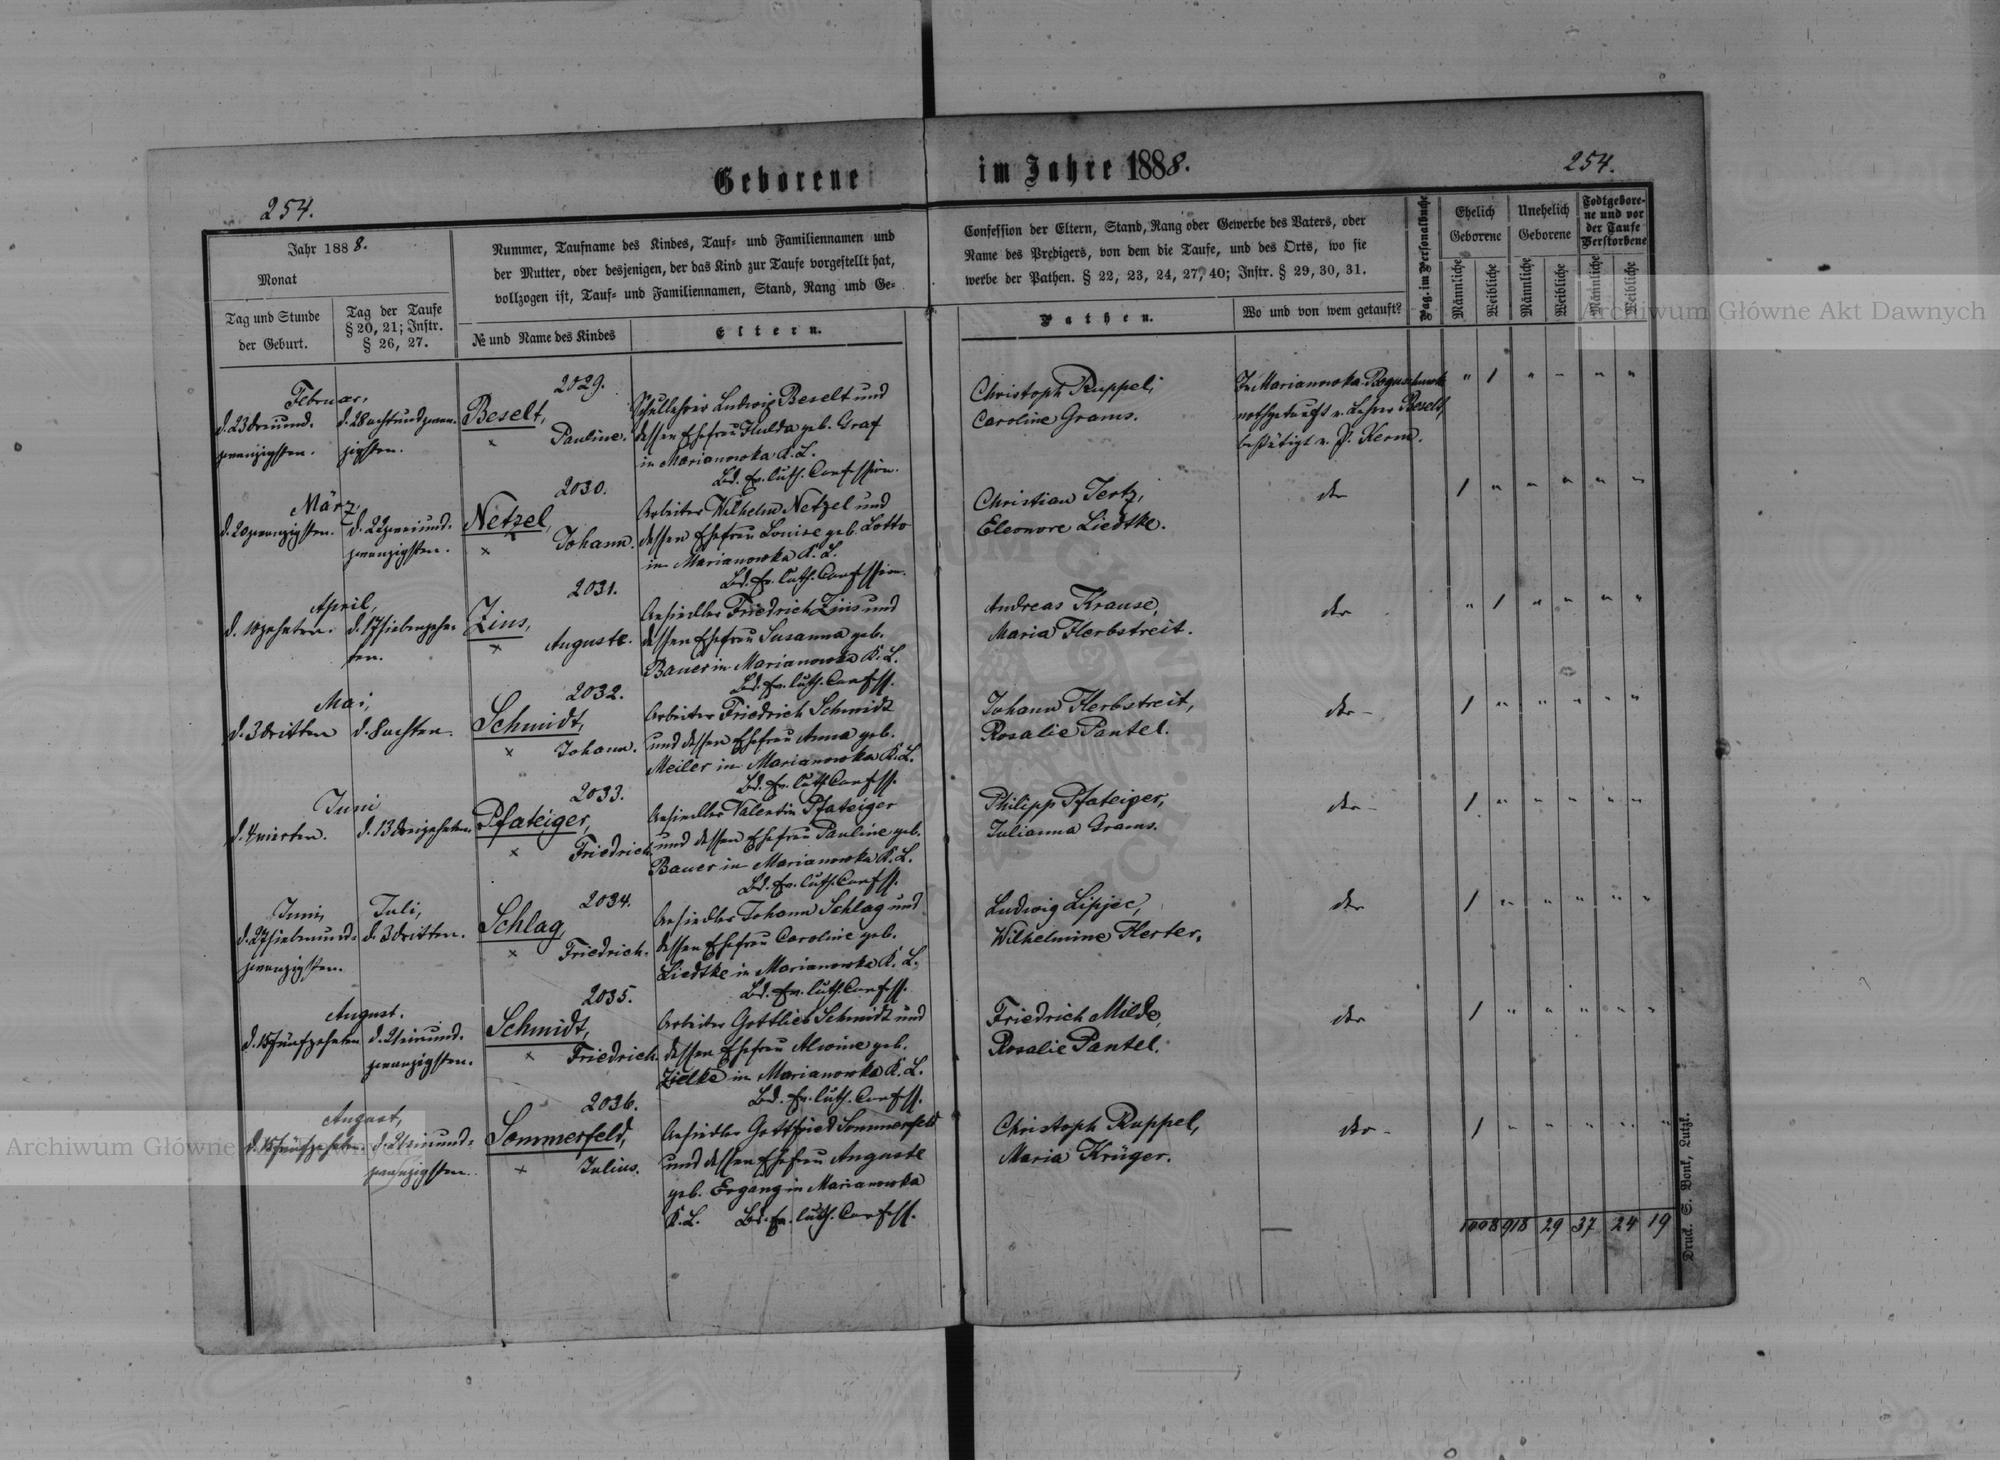 Geborene im Jahre 1888.
254.
254.
Jahr 1888.
Monat
Tag und Stunde
der Geburt.
Tag der Taufe
§ 20, 21; Instr.
§ 26, 27.
Nummer, Taufname des Kindes, Tauf- und Familiennamen und
der Mutter, oder desjenigen, der das Kind zur Taufe vorgestellt hat,
vollzogen ist, Tauf- und Familiennamen, Stand, Rang und Ge-
№ und Name des Kindes
Eltern.
Confession der Eltern, Stand, Rang oder Gewerbe des Vaters, oder
Name des Predigers, von dem die Taufe, und des Orts, wo sie
werbe der Pathen. § 22, 23, 24, 27, 40; Instr. § 29, 30, 31.
Pathen.
Wo und von wem getauft?
Pag. im Personalbuche
Ehelich
Geborene
Unehelich
Geborene
Todtgebore-
ne und vor
der Taufe
Verstorbene
Männliche
Weibliche
Männliche
Weibliche
Männliche
Weibliche
Februar,
d. 23 dreiund-
zwanzigsten.
d. 28 achtundzwan-
zigsten.
2029.
Beselt,
Pauline.
Schullehrer Ludwig Beselt und
dessen Ehefrau Hulda geb. Graf
in Marianowka K. L.
Bd. Ev. luth. Confession.
Christoph Ruppel,
Caroline Grams.
In Marianowka
nothgetauft v. Lehrer Beselt,
bestätigt v. P. Kerm.
" 1 " " " "
März,
d. 20 zwanzigsten.
d. 22 zweiund-
zwanzigsten.
2030.
Netzel,
Johann.
Arbeiter Wilhelm Netzel und
dessen Ehefrau Louise geb. Lotto
in Marianowka K. L.
Bd. Ev. luth. Confession.
Christian Jertz,
Eleonore Liedtke.
der
1 " " " " "
April,
d. 10 zehnten.
d. 17 siebenzehn-
ten.
2031.
Zius,
Auguste.
Ansiedler Friedrich Zius und
dessen Ehefrau Susanna geb.
Bauer in Marianowka K. L.
Bd. Ev. luth. Confess.
Andreas Krause,
Maria Herbstreit.
der
" 1 " " " "
Mai,
d. 3 dritten
d. 8 achten.
2032.
Schmidt,
Johann.
Arbeiter Friedrich Schmidt
und dessen Ehefrau Anna geb.
Meiler in Marianowka K. L.
Bd. Ev. luth. Confess.
Johann Herbstreit,
Rosalie Pantel.
der
1 " " " " "
Juni
d. 4 vierten.
d. 13 dreizehnten.
2033.
Pfateiger,
Friedrich.
Ansiedler Valentin Pfateiger
und dessen Ehefrau Pauline geb.
Bauer in Marianowka K. L.
Bd. Ev. luth. Confess.
Philipp Pfateiger,
Julianna Grams.
der
1 " " " " "
Juni,
d. 27 siebenund-
zwanzigsten.
Juli,
d. 3 dritten.
2034.
Schlag,
Friedrich.
Ansiedler Johann Schlag und
dessen Ehefrau Caroline geb.
Liedtke in Marianowka K. L.
Bd. Ev. luth. Confess.
Ludwig Lipjec,
Wilhelmine Herter.
der
1 " " " " "
August.
d. 15 fünfzehnten
d. 21 einund-
zwanzigsten.
2035.
Schmidt,
Friedrich.
Arbeiter Gottlieb Schmidt und
dessen Ehefrau Alwine geb.
Zielke in Marianowka K. L.
Bd. Ev. luth. Confess.
Friedrich Milde,
Rosalie Pantel.
der
1 " " " " "
August,
d. 15 fünfzehnten.
d. 21 einund-
zwanzigsten.
2036.
Sommerfeld,
Julius.
Ansiedler Gottfried Sommerfeld
und dessen Ehefrau Auguste
geb. Ergang in Marianowka
K. L. Bd. Ev. luth. Confess.
Christoph Ruppel,
Maria Krüger.
der
1 " " " " "
1008 918 29 37 24 19
Druck. E. Bonk, Lutzk.
Archiwum Główne Akt Dawnych
Archiwum Główne Akt Dawnych